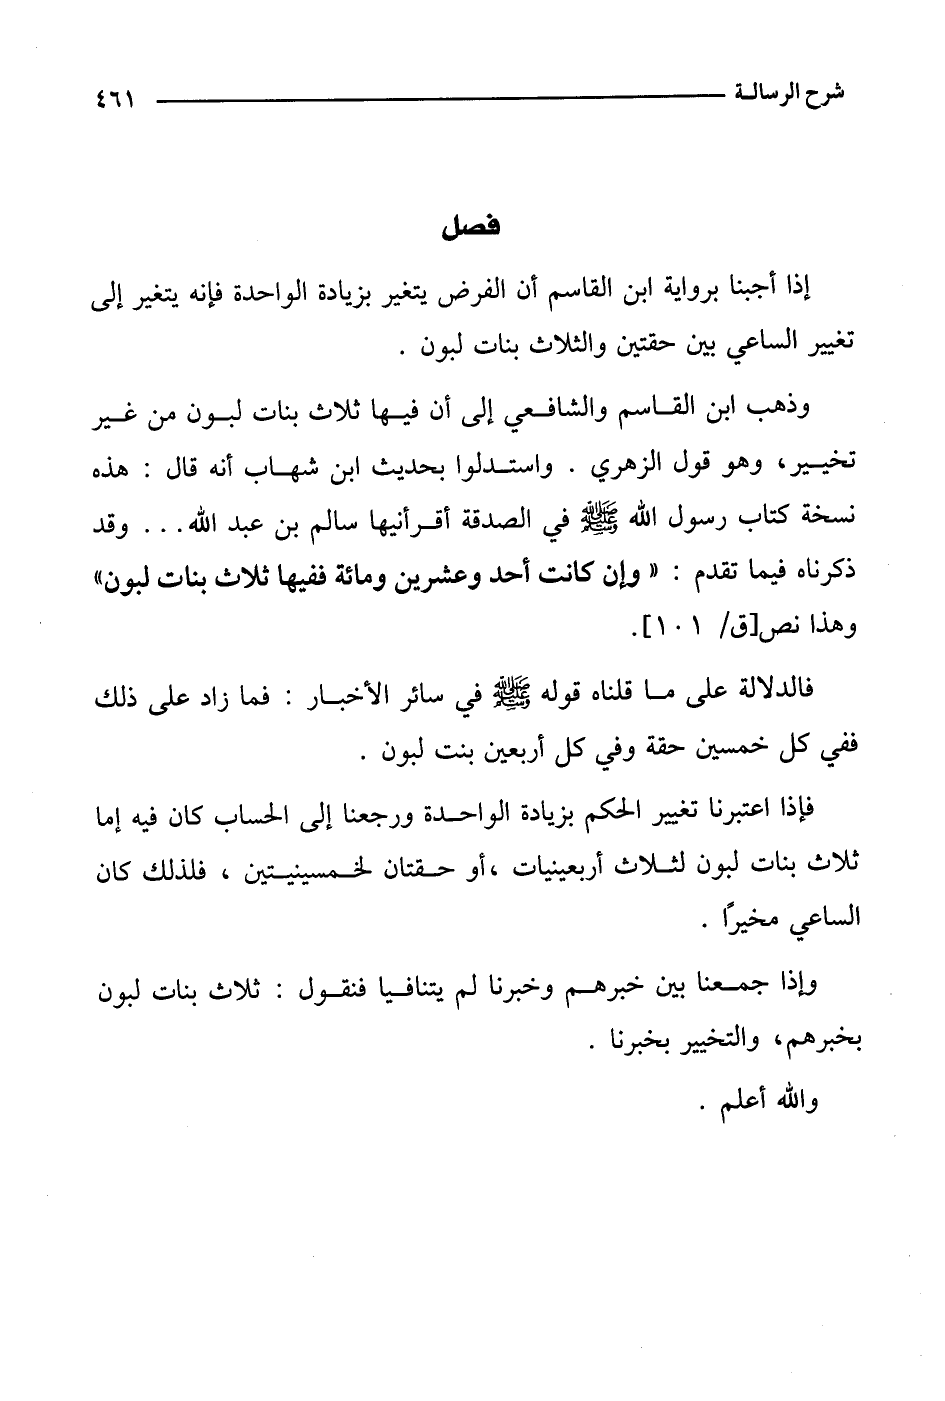 شرح الرسالـة ٤٦١
فصل
إذا أجبنا برواية ابن القاسم أن الفرض يتغير بزيادة الواحدة فإنه يتغير إلى
تغيير الساعي بين حقتين والثلاث بنات لبون .
وذهب ابن القـاسم والشافـعي إلى أن فيـها ثلاث بنات لبـون من غـير
تخيـير، وهو قول الزهري . واستـدلوا بحديث ابن شهـاب أنه قال : هذه
نسخة كتاب رسول الله ﷺ في الصدقة أقـرأنيها سالم بن عبد الله... وقد
ذكرناه فيما تقدم : « وإن كانت أحد وعشرين ومائة ففيها ثلاث بنات لبون»
وهذا نص[ق/ ١٠١].
فالدلالة على مـا قلناه قوله ﷺ في سائر الأخبـار : فما زاد على ذلك
ففي كل خمسين حقة وفي كل أربعين بنت لبون .
فإذا اعتبرنا تغيير الحكم بزيادة الواحـدة ورجعنا إلى الحساب كان فيه إما
ثلاث بنات لبون لثـلاث أربعينيات ،أو حـقتان لخـمسينيـتين ، فلذلك كان
الساعي مخيرًا .
وإذا جمـعنا بين خبرهـم وخبرنا لم يتنافـيا فنقـول : ثلاث بنات لبون
بخبرهم، والتخيير بخبرنا .
والله أعلم .